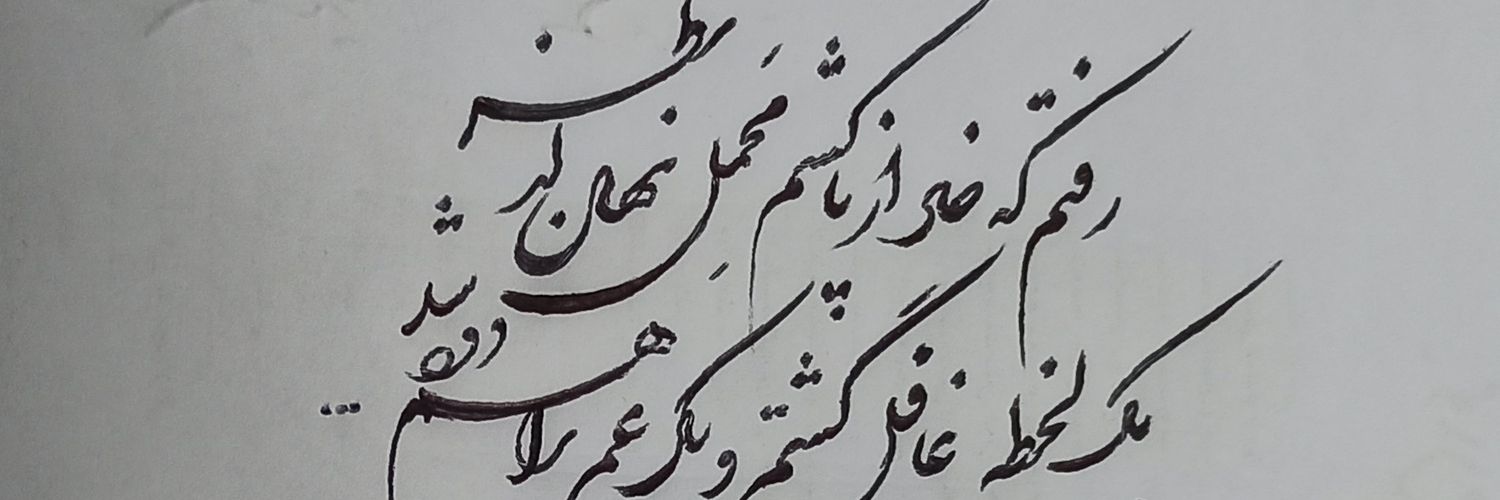 رفتم که خار از پا کشم محمل نهان شد از نظر
یک لحظه غافل گشتم و یک عمر راهم دور شد ...